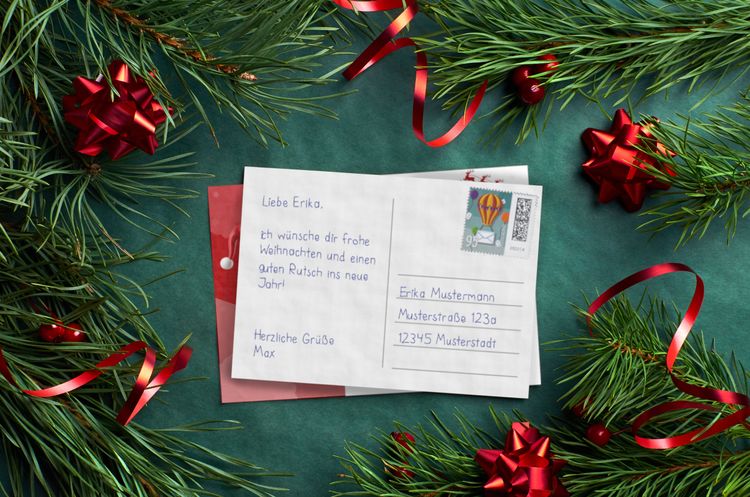 Liebe Erika,
ich wünsche dir frohe
Weihnachten und einen
guten Rutsch ins neue
Jahr!
Herzliche Grüße
Max
95
Erika Mustermann
Musterstraße 123a
12345 Musterstadt